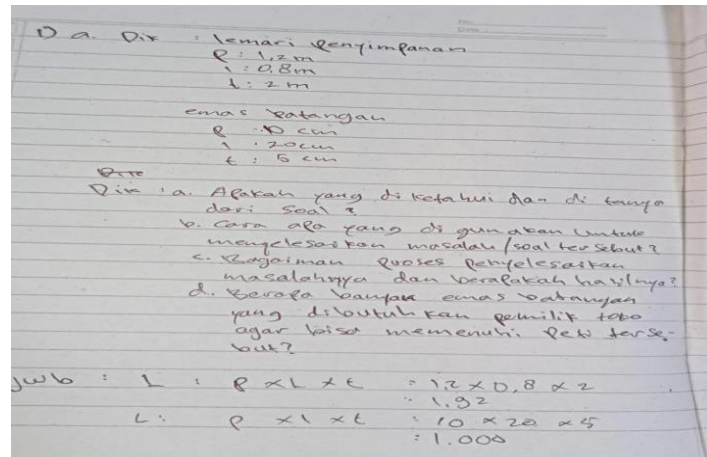 No.
Date
1) a. Dik : lemari penyimpanan
p : 1,2 m
l : 0,8 m
t : 2 m
emas batangan
p : 10 cm
l : 20 cm
t : 5 cm
Dik : a. Apakah yang di ketahui dan di tanya
dari soal ?
b. Cara apa yang di gunakan untuk
mengelesaikan masalah / soal ter sebut ?
c. Bagaiman proses penyelesaikan
masalahnya dan berapakah hasilnya?
d. Berapa banyak emas batangan
yang dibutuh kan pemilik toko
agar bisa memenuhi peti terse-
but?
Jwb : L : p x L x t = 1,2 x 0,8 x 2
: 1.92
L : p x l x t : 10 x 20 x 5
: 1.000